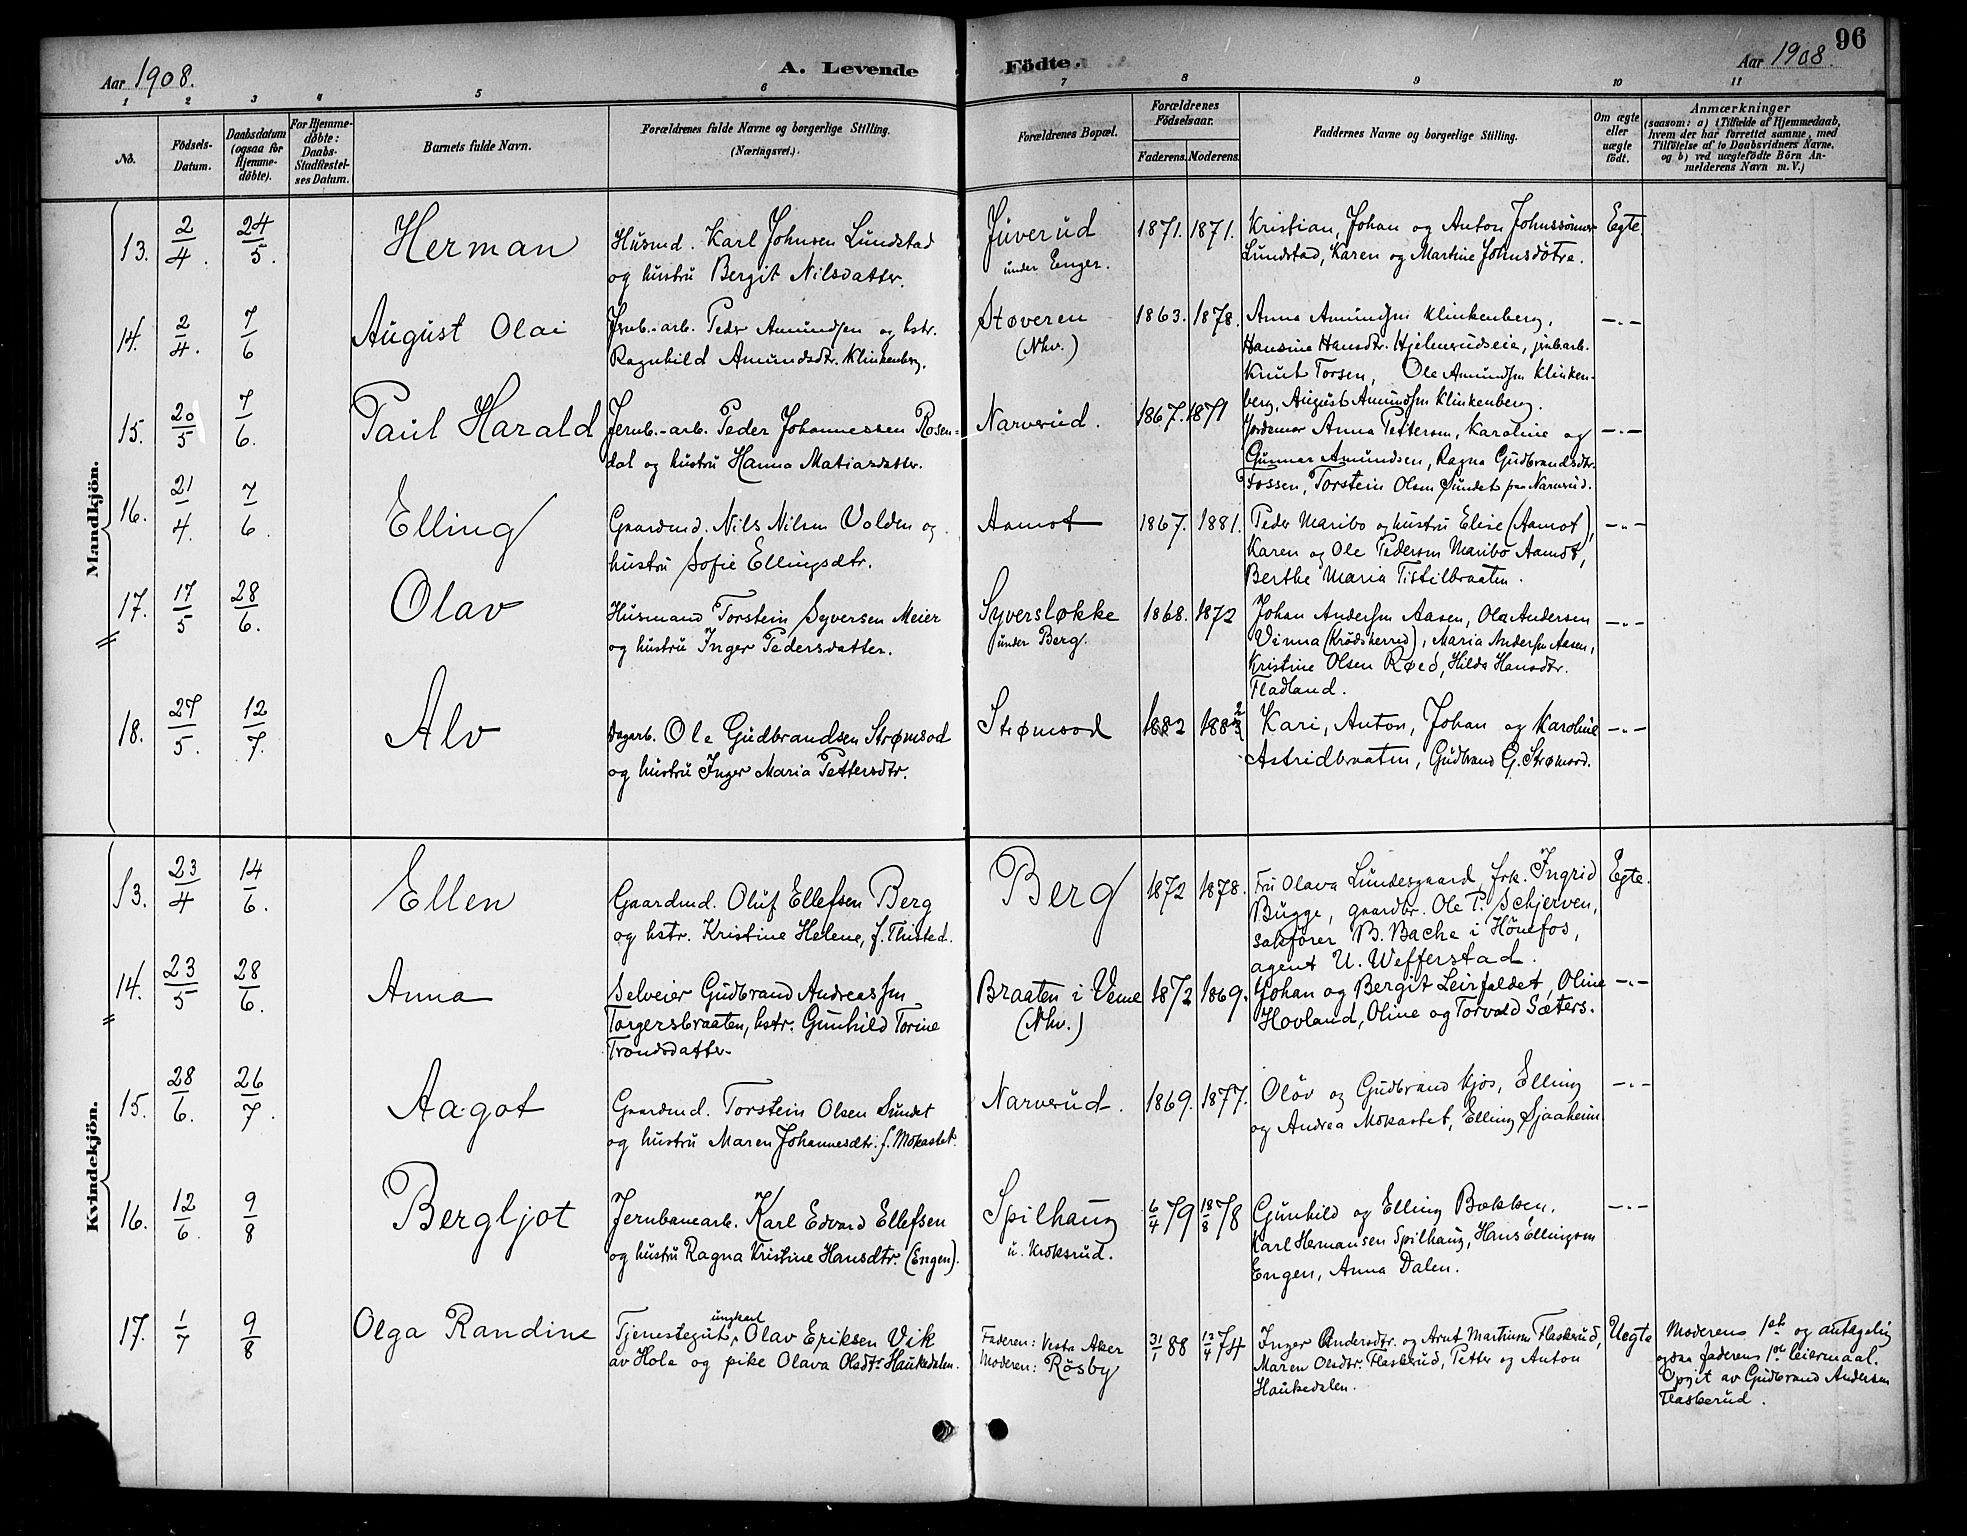 96
Aar 1908. A. Levende Födte. Aar 1908.
1 2 3 4 5 6 7 8 9 10 11
No.
Födsels-Datum.
Daabsdatum (ogsaa for Hjemme-döbte).
For Hjemme-döbte: Daabs-Stadfæstel-ses Datum.
Barnets fulde Navn.
Forældrenes fulde Navne og borgerlige Stilling. (Næringsvei.)
Forældrenes Bopæl.
Forældrenes Födselsaar.
Faderens. Moderens.
Faddernes Navne og borgerlige Stilling.
Om ægte eller uægte födt.
Anmærkninger
(saasom: a) i Tilfælde af Hjemmedaab,
hvem der har forrettet samme, med
Tilföielse af to Daabsvidners Navne,
og b) ved uægtefödte Börn An-
melderens Navn m.V.)
Mandkjön.
13. 2/4. 24/5. Herman
Husmd. Karl Johnsen Lundstad
og hustru Bergit Nilsdatter.
Juverud
under Enger.
1871. 1871.
Kristian, Johan og Anton Johnssönner
Lundstad, Karen og Martine Johnsdötre.
Egte
14. 2/4. 7/6 August Olai
Jrnb.-arb. Peder Amundsen og hstr.
Ragnhild Amundsdtr. Klinkenberg.
Støveren
(Nhv.)
1863. 1878.
Anna Amundsen Klinkenberg,
Hansine Hansdtr. Hjelmerudseie, jrnb.arb.
Knut Torsen, Ole Amundsen Klinken-
berg, August Amundsen Klinkenberg.
—"—
15. 20/5 7/6. Paul Harald
Jernb.-arb. Peder Johannessen Rosen-
dal og hustru Hanna Matiasdatter.
Narverud.
1867. 1871
Jordemor Anna Pettersen, Karoline og
Gunnar Amundsen, Ragna Gudbrandsdtr.
Fossen, Torstein Olsen Sundet paa Narverud.
—"—
16. 21/4. 7/6. Elling
Gaardmd. Nils Nilsen Volden og
hustru Sofie Ellingsdtr.
Aamot
1867. 1881.
Peder Maribo og hustru Elise (Aamot),
Karen og Ole Pedersen Maribo Aamot,
Berthe Maria Tistilbraaten.
—"—
17. 17/5 28/6. Olav
Husmand Torstein Syversen Meier
og hustru Inger Pedersdatter.
Syversløkke
under Berg.
1868. 1872
Johan Andersen Aasen, Ole Andersen
Vinna (Krödsherred), Maria Andersen Aasen,
Kristine Olsen Røed, Hilda Hansdtr.
Fladland.
—"—
18. 27/5. 12/7. Alv
Dagarb. Ole Gudbrandsen Strømsod
og hustru Inger Maria Pettersdtr.
Strømsod
1882 1882
Kari, Anton, Johan og Karoline
Astridbraaten, Gudbrand G. Strømsod.
—"—
Kvindekjön.
13. 23/4 14/6. Ellen
Gaardmd. Oluf Ellefsen Berg
og hstr. Kristine Helene, f. Thisted.
Berg
1872 1878.
Fru Olava Lundesgaard, frk. Ingrid
Bugge, gaardbr. Ole T. Schjerven,
sakförer B. Bache i Hönefos,
agent U. Wefferstad.
Egte.
14. 23/5 28/6. Anna
Selveier Gudbrand Andreassen
Torgersbraaten, hstr. Gunhild Torine
Trondsdatter.
Braaten i Veme
(Nhv.)
1872 1869.
Johan og Bergit Leirfaldet, Oline
Hovland, Oline og Torvald Sæters.
—"—
15. 28/6. 26/7. Aagot
Gaardmd. Torstein Olsen Sundet
og hustru Maren Johannesdtr. f. Mokastet.
Narverud.
1869. 1877.
Olöv og Gudbrand Kjos, Elling
og Andrea Mokastet, Elling Sjaaheim.
—"—
16. 12/6. 9/8 Bergljot
Jernbanearb. Karl Edvard Ellefsen
og hustru Ragna Kristine Hansdtr. (Engen).
Spilhaug
u. Kroksrud.
6/4 79 18/8 78
Gunhild og Elling Bakken,
Karl Hermansen Spilhaug, Hans Ellingsen
Engen, Anna Dalen.
—"—
17. 1/7 9/8 Olga Randine
Tjenestegut, ungkarl Olav Eriksen Vik
av Hole og pike Olava Olsdtr. Haukedalen.
Faderen: Vestra Aker
Moderen: Rösby
31/1 88 12/4 74
Inger Andersdtr. og Arnt Martinsen Flaskerud,
Maren Olsdtr. Flaskerud, Petter og Anton
Haukedalen.
Uegte
Moderens 1st og antagelig
ogsaa faderens 1ste leiermaal.
Opgit av Gudbrand Andersen
Flaskerud.